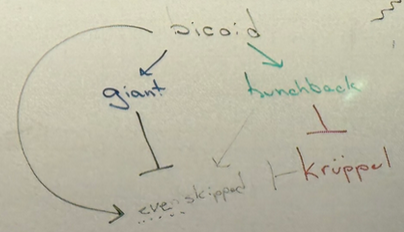 bicoid
giant hunchback
Krüppel
even skipped